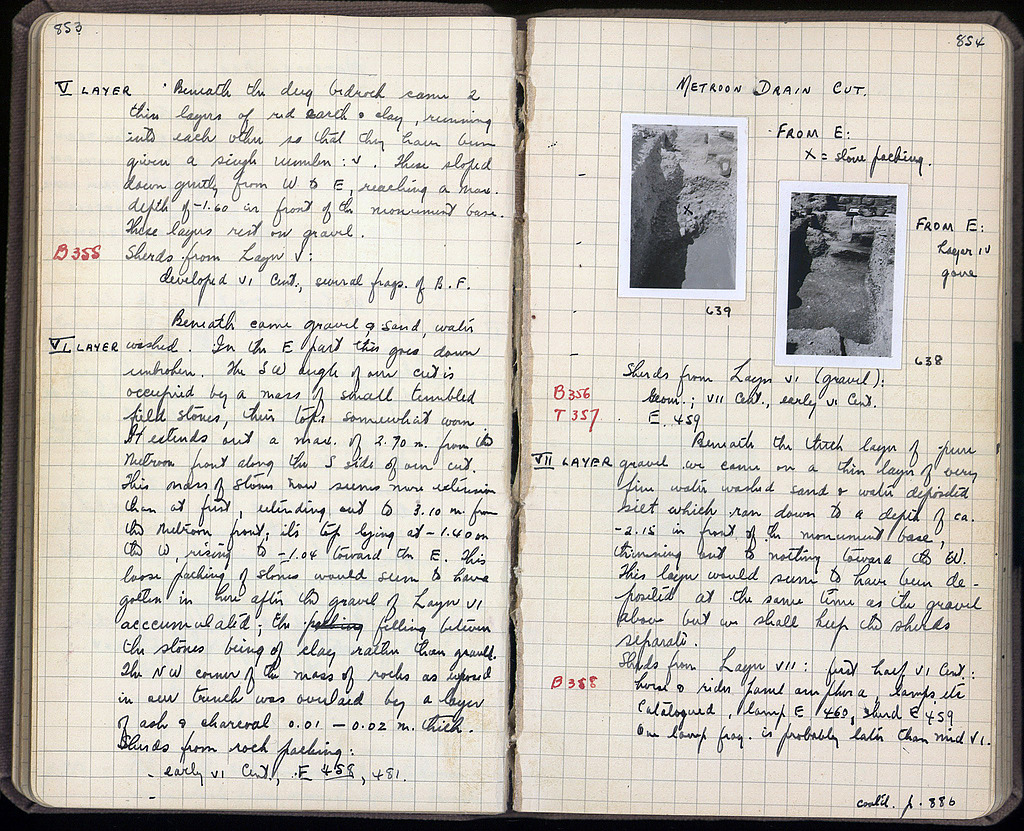 853
V LAYER Beneath the dug bedrock came 2
thin layers of red earth & clay, running
into each other so that they have been
given a single number: V. These sloped
down gently from W to E, reaching a max.
depth of -1.60 in front of the monument base.
These layers rest on gravel.
B 355 Sherds from Layer V:
developed VI Cent., several frags. of B.F.
Beneath came gravel & sand, water
VI LAYER washed. In the E part this goes down
unbroken. The SW angle of our cut is
occupied by a mass of small tumbled
field stones, their tops somewhat worn.
It extends out a max. of 2.70 m. from the
Metroon front along the S side of our cut.
This mass of stones now seems more extensive
than at first, extending out to 3.10 m. from
the Metroon front, its top lying at -1.40 on
the W, rising to -1.04 toward the E. This
loose packing of stones would seem to have
gotten in here after the gravel of Layer VI
acccumulated; the filling between
the stones being of clay rather than gravel.
The NW corner of the mass of rocks as exposed
in our trench was overlaid by a layer
of ash & charcoal 0.01 – 0.02 m. thick.
Sherds from rock packing:
- early VI Cent., E 458, 481.
854
METROON DRAIN CUT.
FROM E:
X = stone packing.
X
639
FROM E:
Layer IV
gone
638
Sherds from Layer VI (gravel):
B 356 Geom.; VII Cent., early VI Cent.
T 357 E. 459
Beneath the thick layer of pure
VII LAYER gravel we came on a thin layer of very
fine water washed sand & water deposited
silt which ran down to a depth of ca.
-2.15 in front of the monument base,
thinning out to nothing toward the W.
This layer would seem to have been de-
posited at the same time as the gravel
above but we shall keep the sherds
separate.
Sherds from Layer VII: first half VI Cent.:
B 358 horse & rider panel amphora, lamps etc
Catalogued, lamp E 460, sherd E 459
One lamp frag. is probably later than mid VI.
cont'd. p. 886